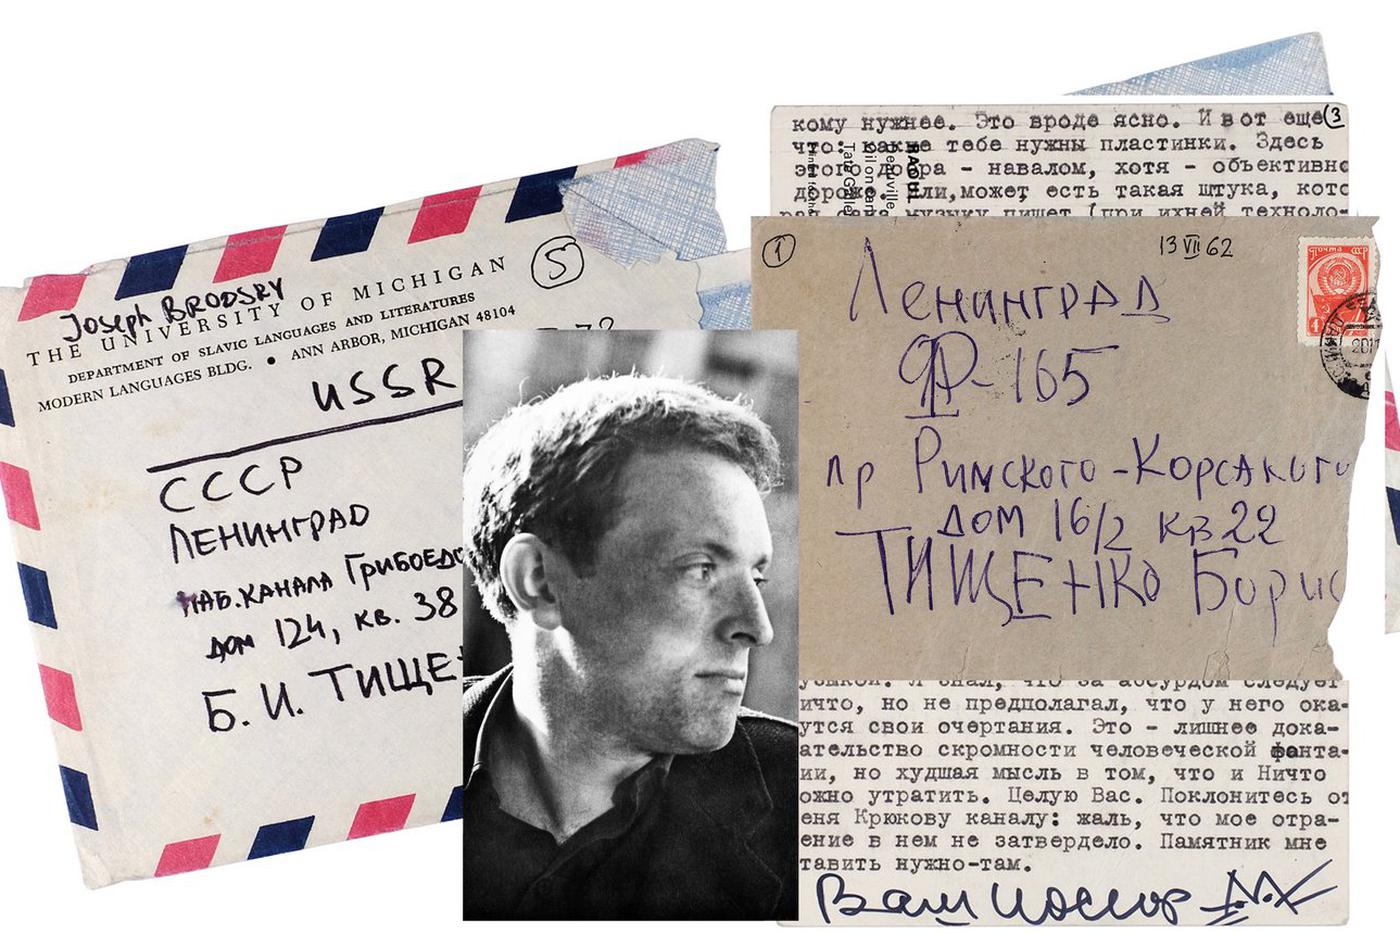 Joseph BRODSKY
THE UNIVERSITY OF MICHIGAN
DEPARTMENT OF SLAVIC LANGUAGES AND LITERATURES
MODERN LANGUAGES BLDG. • ANN ARBOR, MICHIGAN 48104
5
USSR
СССР
ЛЕНИНГРАД
НАБ. КАНАЛА ГРИБОЕДО
ДОМ 124, КВ. 38
Б. И. ТИЩЕ
3
кому нужнее. Это вроде ясно. И вот еще
что: какие тебе нужны пластинки. Здесь
этого добра - навалом, хотя - объективно
дороже. Или,может, есть такая штука, кото
музыку пишет (при ихней техноло-
RAOUL
Deauville
Oil on can
Tate Galle
1
13 VII 62
почта СССР
4
Ленинград
Ф-165
пр Римского-Корсакого
дом 16/2 кв 22
ТИЩЕНКО Борис
узыкой. Я знал, что за абсурдом следует
ичто, но не предполагал, что у него ока-
утся свои очертания. Это - лишнее дока-
ательство скромности человеческой фанта-
ии, но худшая мысль в том, что и Ничто
ожно утратить. Целую Вас. Поклонитесь от
еня Крюкову каналу: жаль, что мое отра-
ение в нем не затвердело. Памятник мне
тавить нужно-там.
Ваш Иосиф